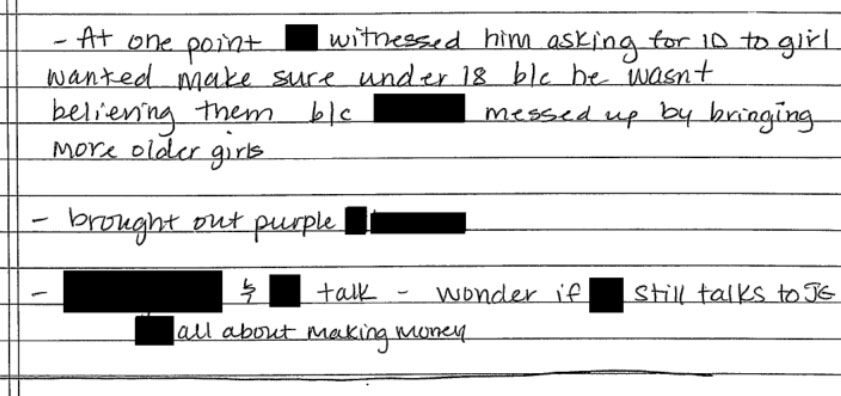 - At one point witnessed him asking for ID to girl
wanted make sure under 18 b/c he wasnt
believing them b/c messed up by bringing
more older girls
- brought out purple
- & talk - wonder if still talks to JE
all about making money